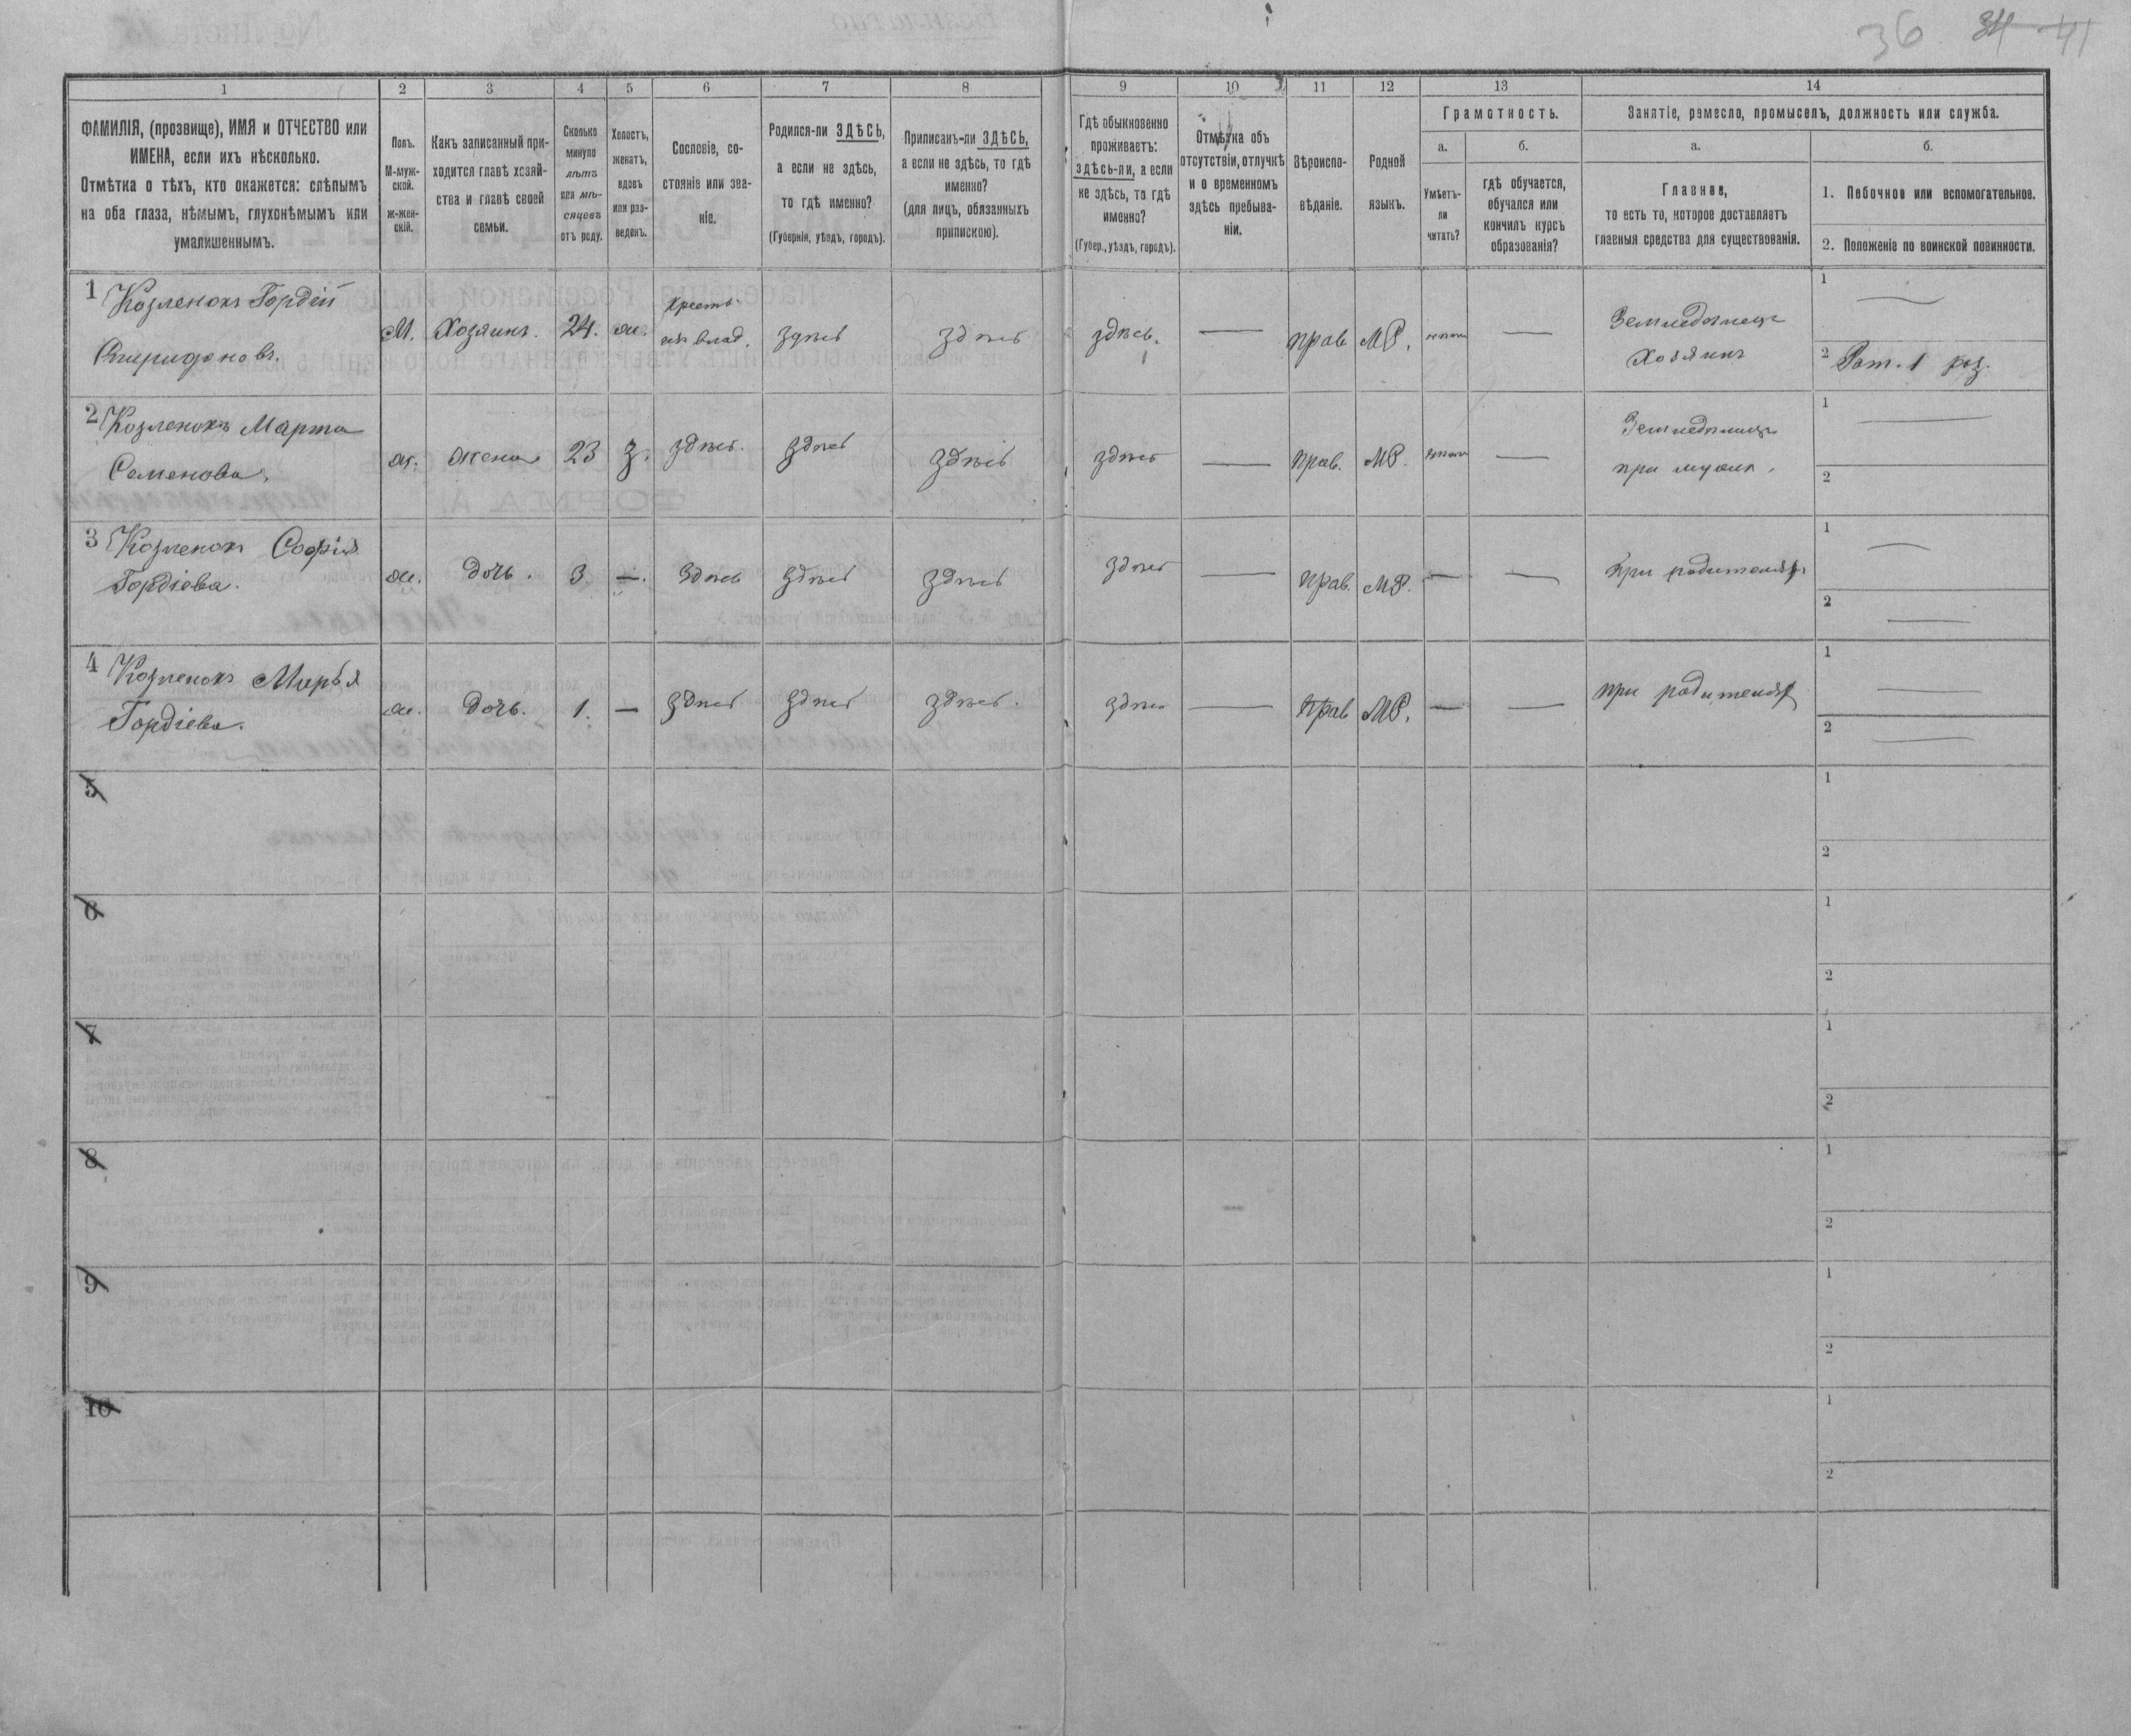 36 34 41
1 2 3 4 5 6 7 8 9 10 11 12 13 14
ФАМИЛІЯ, (прозвище), ИМЯ и ОТЧЕСТВО или
ИМЕНА, если ихъ нѣсколько.
Отмѣтка о тѣхъ, кто окажется: слѣпымъ
на оба глаза, нѣмымъ, глухонѣмымъ или
умалишеннымъ.
Полъ.
М-муж-
ской.
ж-жен-
скій.
Какъ записанный при-
ходится главѣ хозяй-
ства и главѣ своей
семьи.
Сколько
минуло
лѣтъ
или мѣ-
сяцевъ
отъ роду.
Холостъ,
женатъ,
вдовъ
или раз-
веденъ.
Сословіе, со-
стояніе или зва-
ніе.
Родился-ли ЗДѢСЬ,
а если не здѣсь,
то гдѣ именно?
(Губернія, уѣздъ, городъ).
Приписанъ-ли ЗДѢСЬ,
а если не здѣсь, то гдѣ
именно?
(для лицъ, обязанныхъ
припискою).
Гдѣ обыкновенно
проживаетъ:
здѣсь-ли, а если
не здѣсь, то гдѣ
именно?
(Губер., уѣздъ, городъ).
Отмѣтка объ
отсутствіи, отлучкѣ
и о временномъ
здѣсь пребыва-
ніи.
Вѣроиспо-
вѣданіе.
Родной
языкъ.
Грамотность.
а.
Умѣетъ-
ли
читать?
б.
гдѣ обучается,
обучался или
кончилъ курсъ
образованія?
Занятіе, ремесло, промыселъ, должность или служба.
а.
Главное,
то есть то, которое доставляетъ
главныя средства для существованія.
б.
1. Побочное или вспомогательное.
2. Положеніе по воинской повинности.
1 Козленокъ Гордій
Спиридоновъ.
М. Хозяинъ. 24. ж. Крест. влад. здѣсь здѣсь здѣсь. — прав МР. —
Земледѣлецъ
Хозяинъ
1 —
2 Рат. 1 раз.
2 Козленокъ Марта
Семенова.
ж. жена 23 з. здѣсь. здѣсь здѣсь здѣсь — прав. МР. —
Земледѣлецъ
при мужѣ.
1 —
2
3 Козленокъ Софія
Гордіева.
ж. дочь. 3 —. здѣсь здѣсь здѣсь здѣсь — прав. МР. — —
при родителях
1 —
2 —
4 Козленокъ Марья
Гордіева.
ж. дочь. 1. — здѣсь здѣсь здѣсь. здѣсь — прав МР. — —
при родителях
1 —
2 —
5
1
2
6
1
2
7
1
2
8
1
2
9
1
2
10
1
2